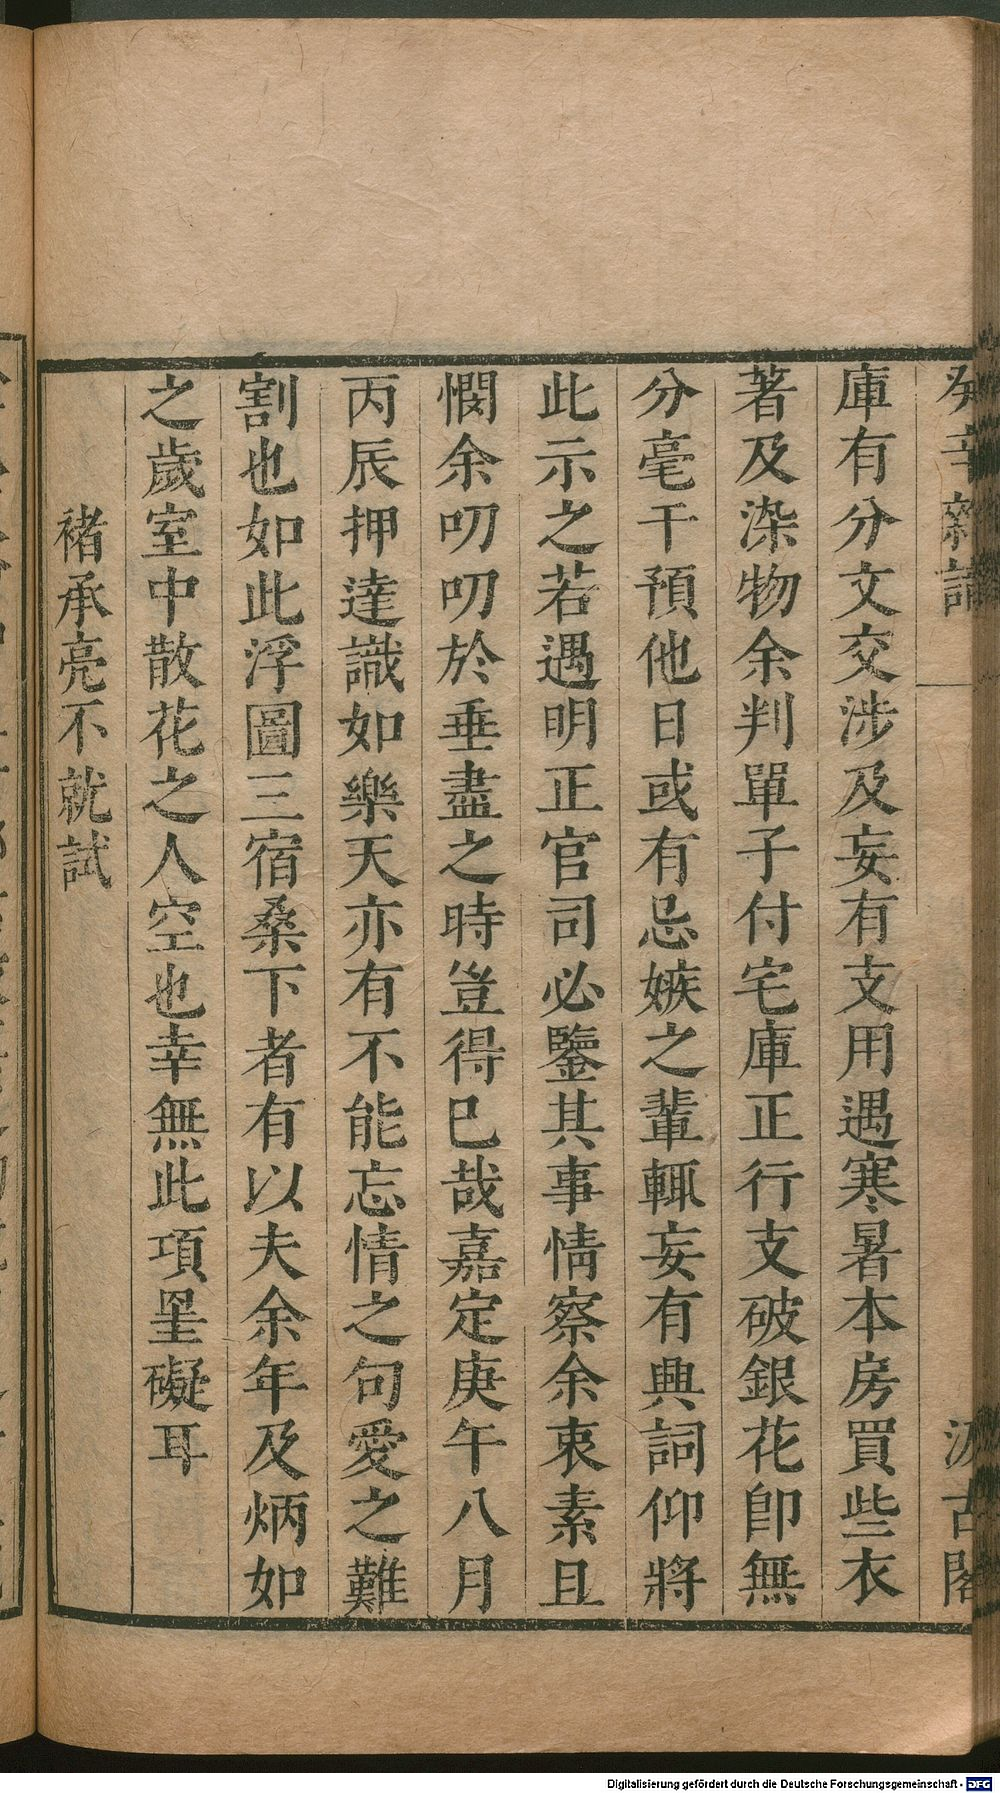 癸辛雜識
汲古閣
庫有分文交涉及妄有支用遇寒暑本房買些衣
著及染物余判單子付宅庫正行支破銀花卽無
分毫干預他日或有忌嫉之輩輒妄有興詞仰將
此示之若遇明正官司必鑒其事情察余衷素且
憫余叨叨於垂盡之時豈得已哉嘉定庚午八月
丙辰押達識如樂天亦有不能忘情之句愛之難
割也如此浮圖三宿桑下者有以夫余年及炳如
之歲室中散花之人空也幸無此項罣礙耳
褚承亮不就試
Digitalisierung gefördert durch die Deutsche Forschungsgemeinschaft - DFG